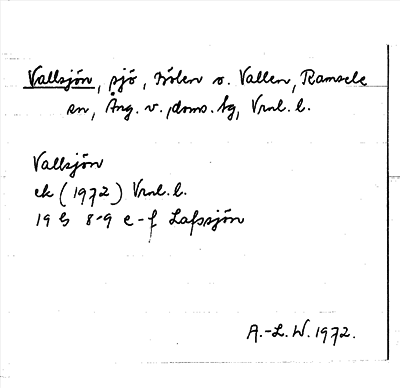 Vallsjön, sjö, Nölen o. Vallen, Ramsele
sn, Ång. v. doms. tg, Vrnl. l.
Vallsjön
ek (1972) Vrnl. l.
19 G 8-9 e-f Lafssjön
A.-L. W. 1972.